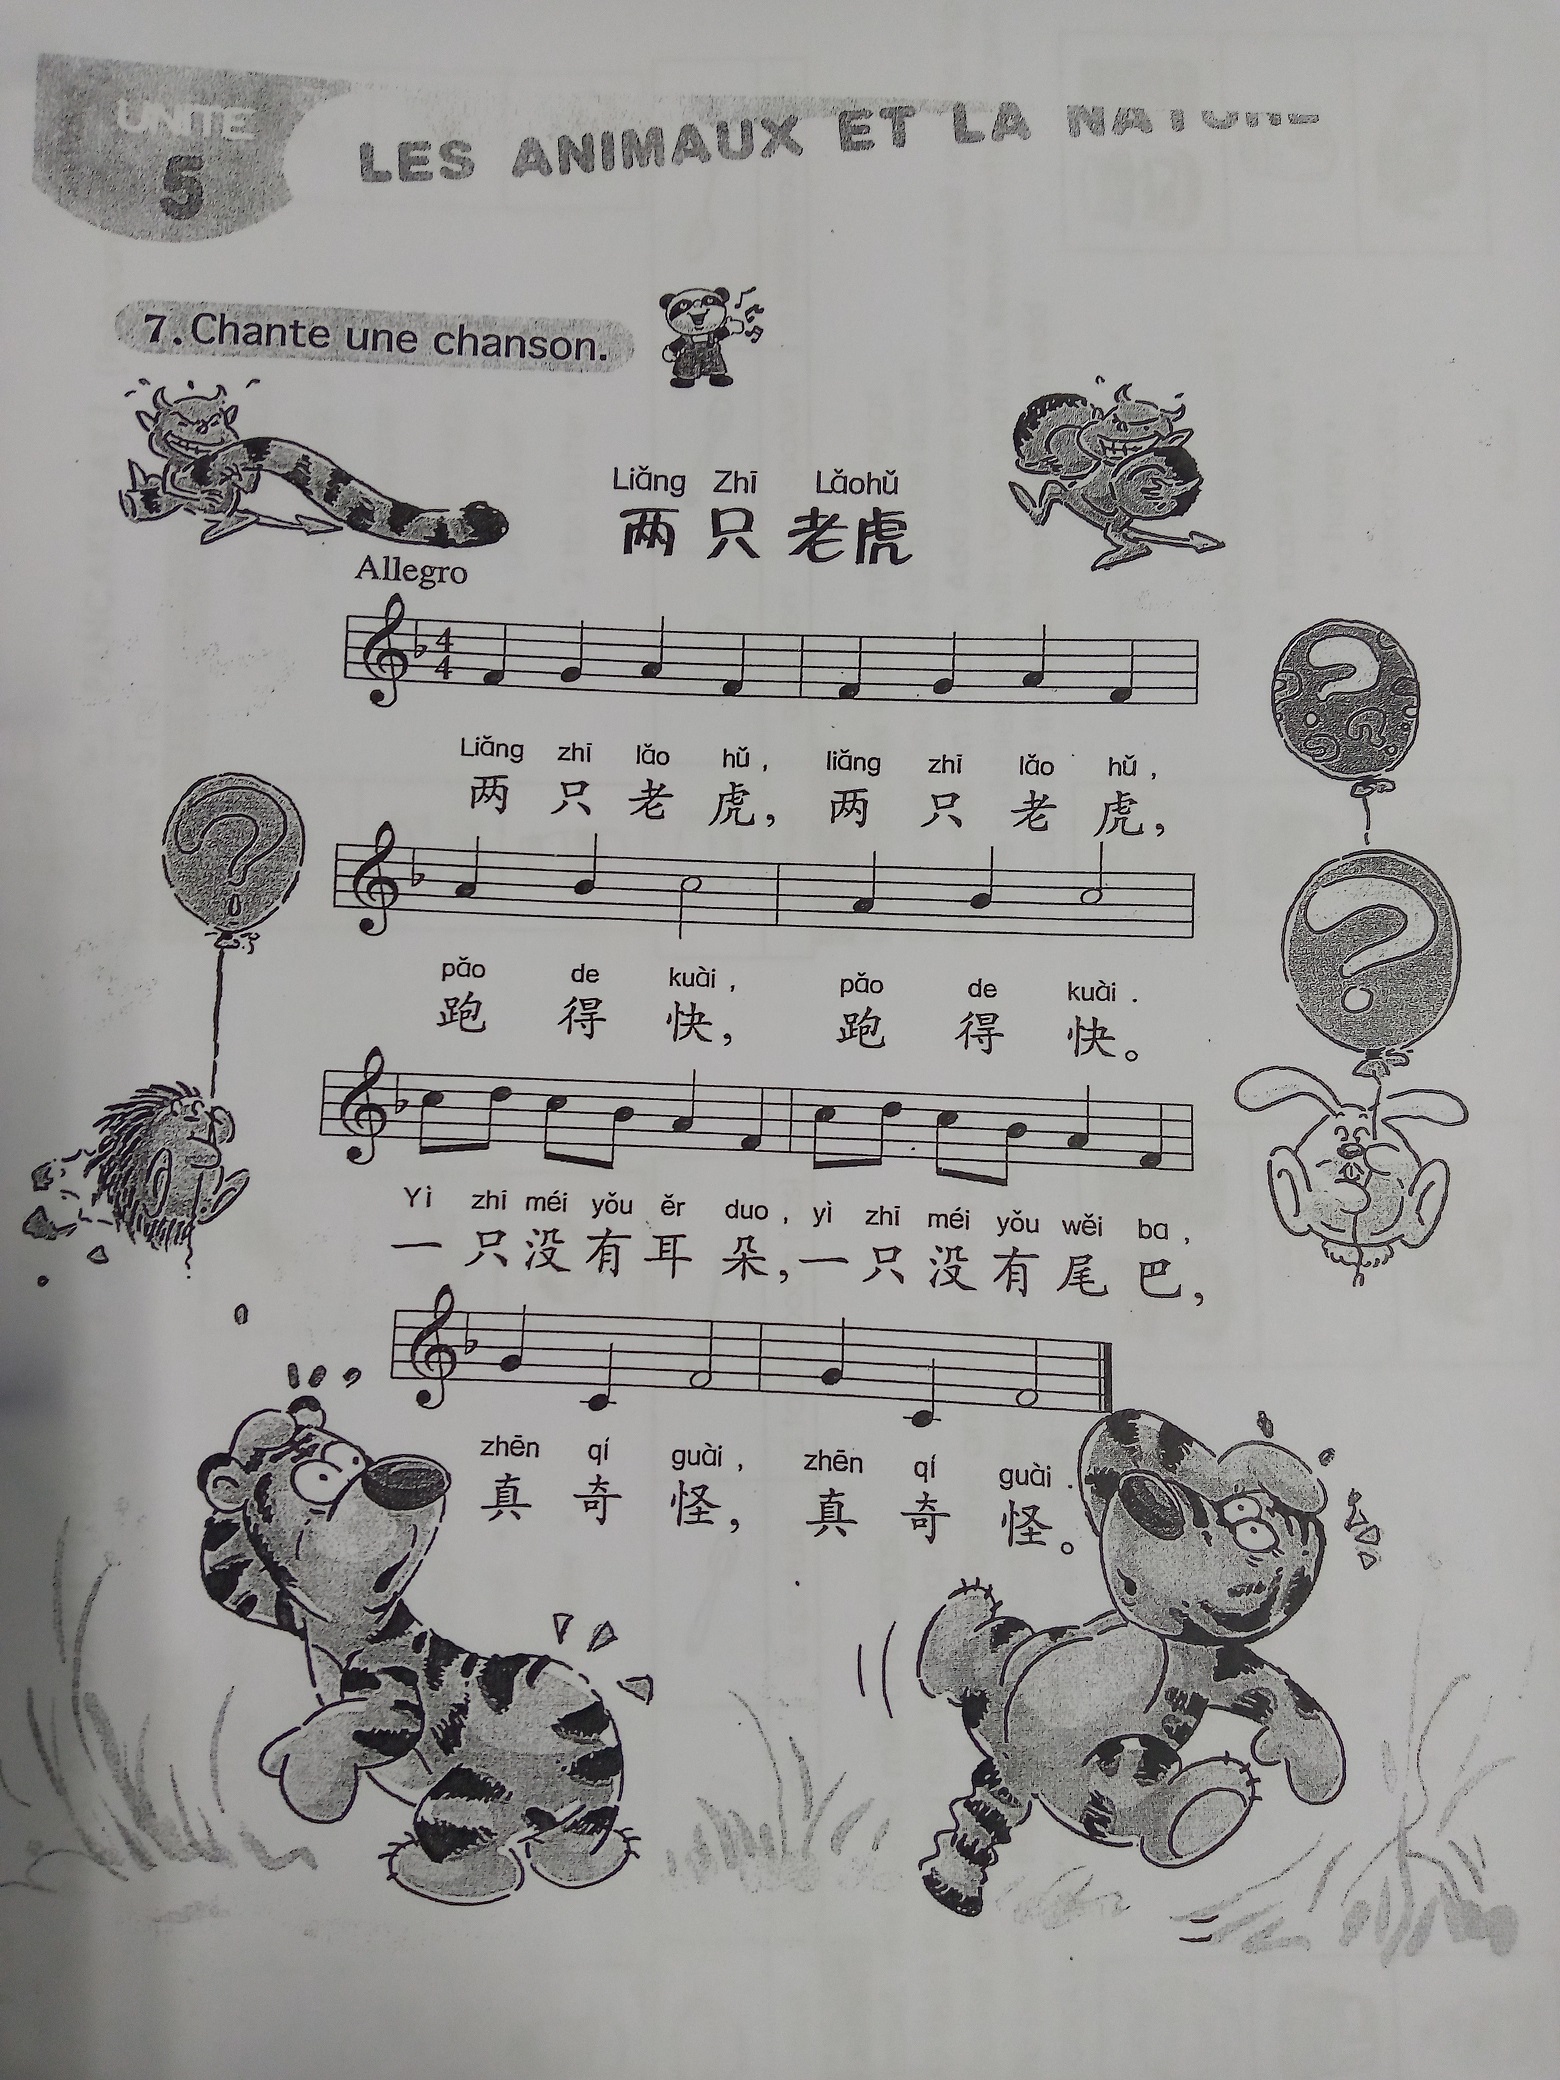 UNITE
5
LES ANIMAUX ET LA NATURE
7. Chante une chanson.
Liǎng Zhī Lǎohǔ
两只老虎
Allegro
4
4
Liǎng zhī lǎo hǔ , liǎng zhī lǎo hǔ ,
两只老虎，两只老虎，
pǎo de kuài , pǎo de kuài .
跑得快，跑得快。
Yì zhī méi yǒu ěr duo , yì zhī méi yǒu wěi ba ,
一只没有耳朵，一只没有尾巴，
zhēn qí guài , zhēn qí guài .
真奇怪，真奇怪。